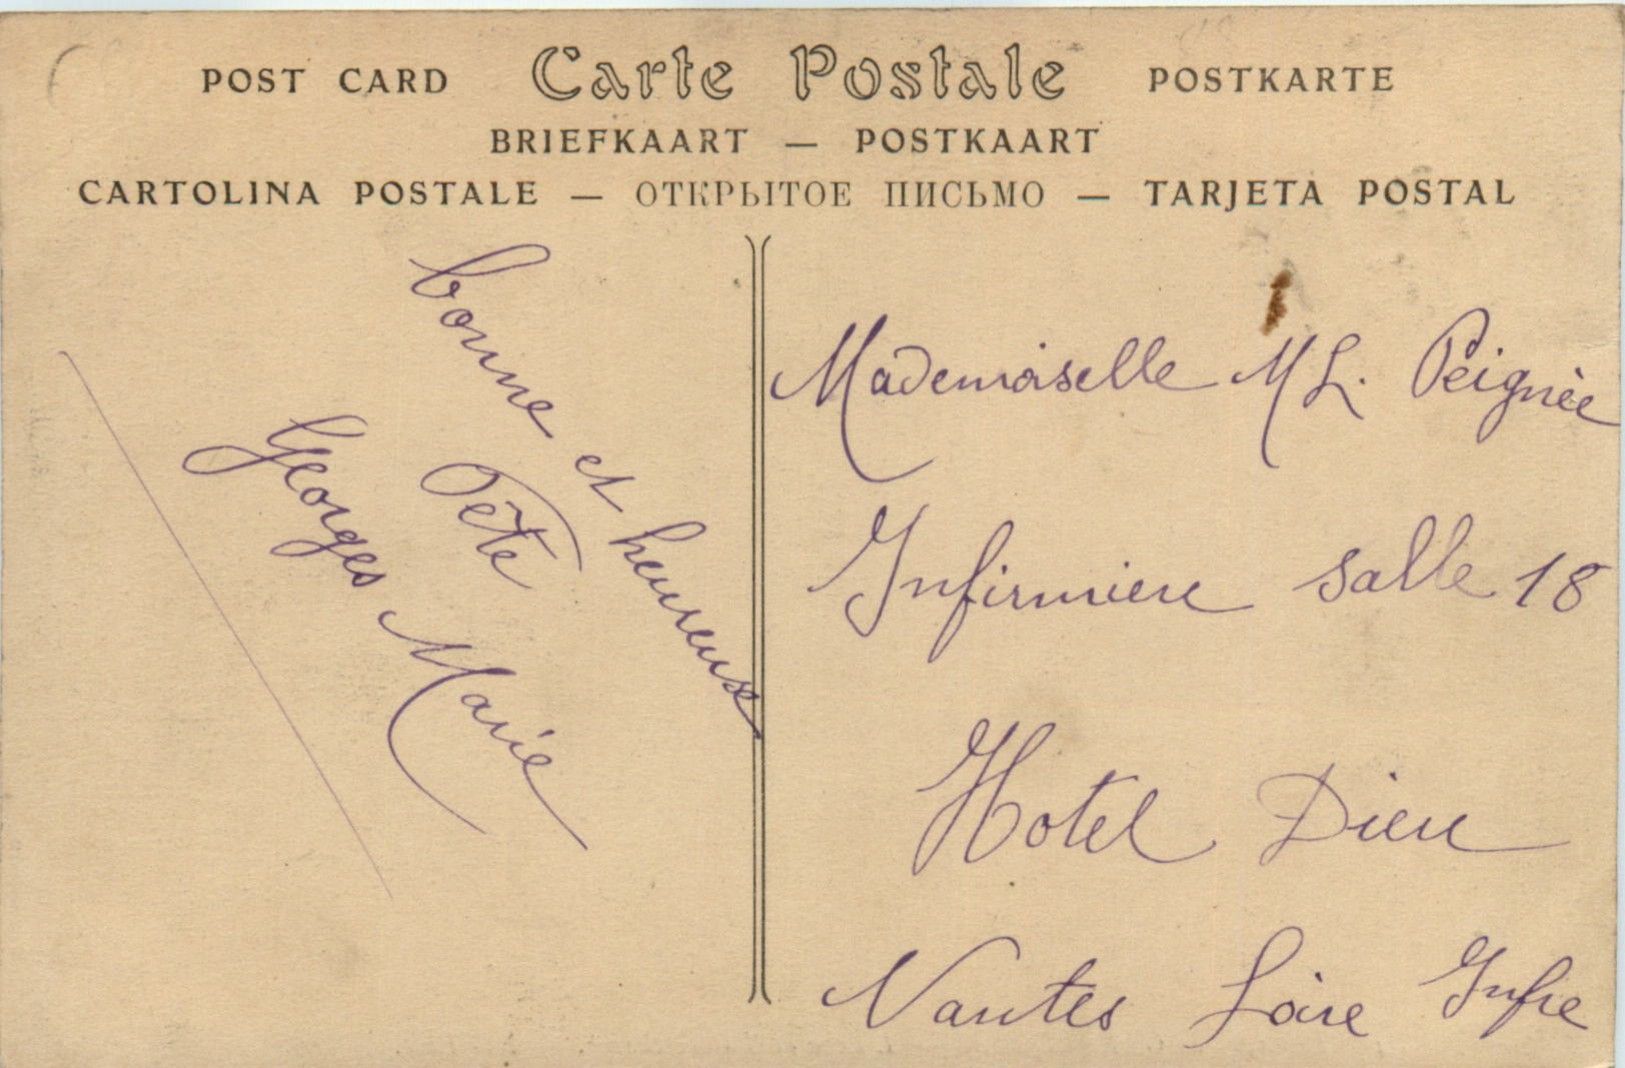 POST CARD Carte Postale POSTKARTE
BRIEFKAART — POSTKAART
CARTOLINA POSTALE — ОТКРЫТОЕ ПИСЬМО — TARJETA POSTAL
bonne et heureuse
Fête
Georges Marie
Mademoiselle M L. Peignée
Infirmiere salle 18
Hotel Dieu
Nantes Loire Infre